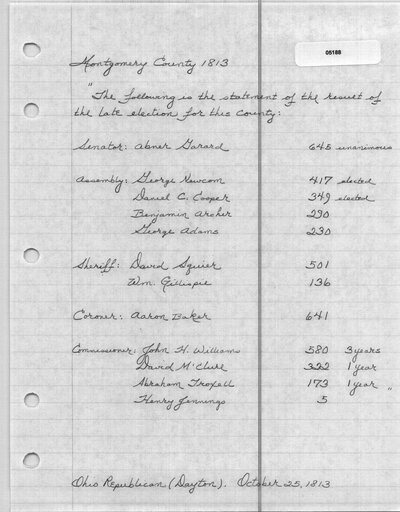 05188
Montgomery County 1813
"The following is the statement of the result of
the late election for this County:
Senator: Abner Garard 648 unanimous
Assembly: George Newcom 417 elected
Daniel C. Cooper 349 elected
Benjamin Archer 230
George Adams 230
Sheriff: David Squier 501
Wm. Gillispie 136
Coroner: Aaron Baker 641
Commissioner: John H. Williams 580 3 years
David McClure 322 1 year
Abraham Troxell 173 1 year "
Henry Jennings 5
Ohio Republican (Dayton). October 25, 1813